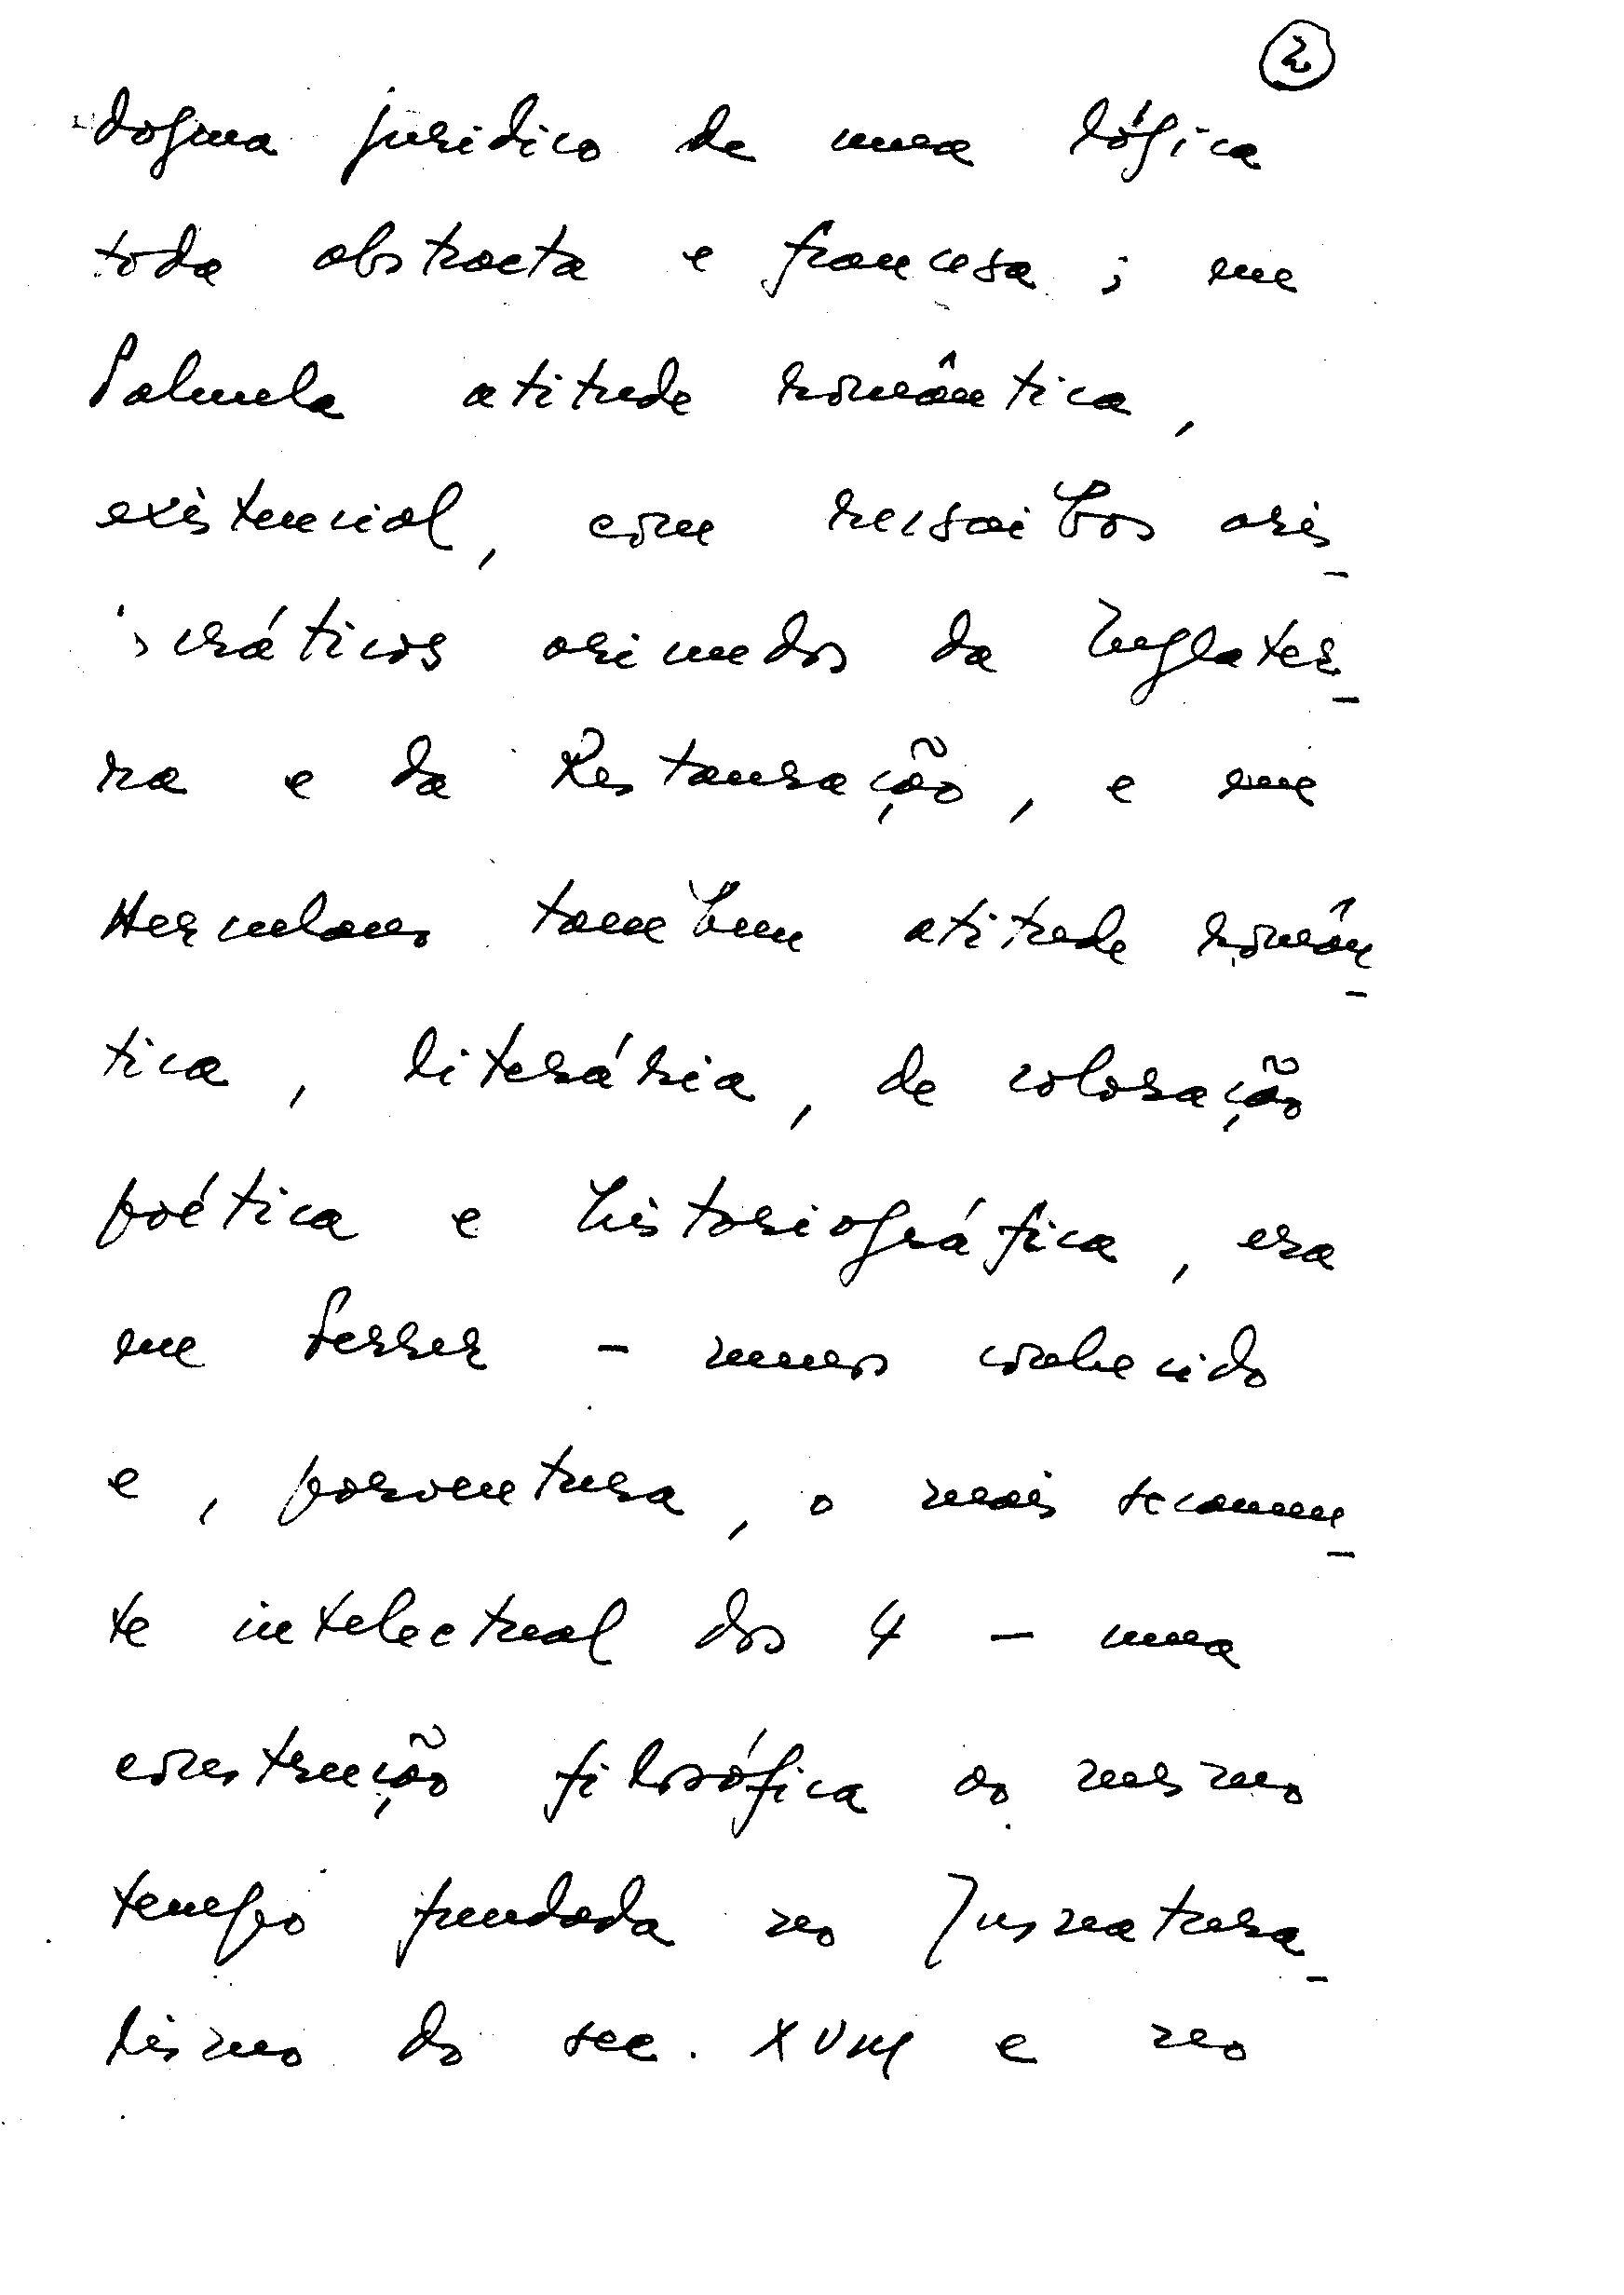 2
dogma jurídico de uma lógica
toda abstracta e francesa; em
Palmela atitude romântica,
existencial, com ressaibos aris-
cráticos oriundos da Inglater-
ra e da Restauração, e em
Herculano também atitude român-
tica, literária, de coloração
poética e historiográfica, era
em Ferrer - menos conhecido
e, porventura, o mais secamen-
te intelectual dos 4 - uma
construção filosófica ao mesmo
tempo fundada no Jusnatura-
lismo do sec. XVIII e no